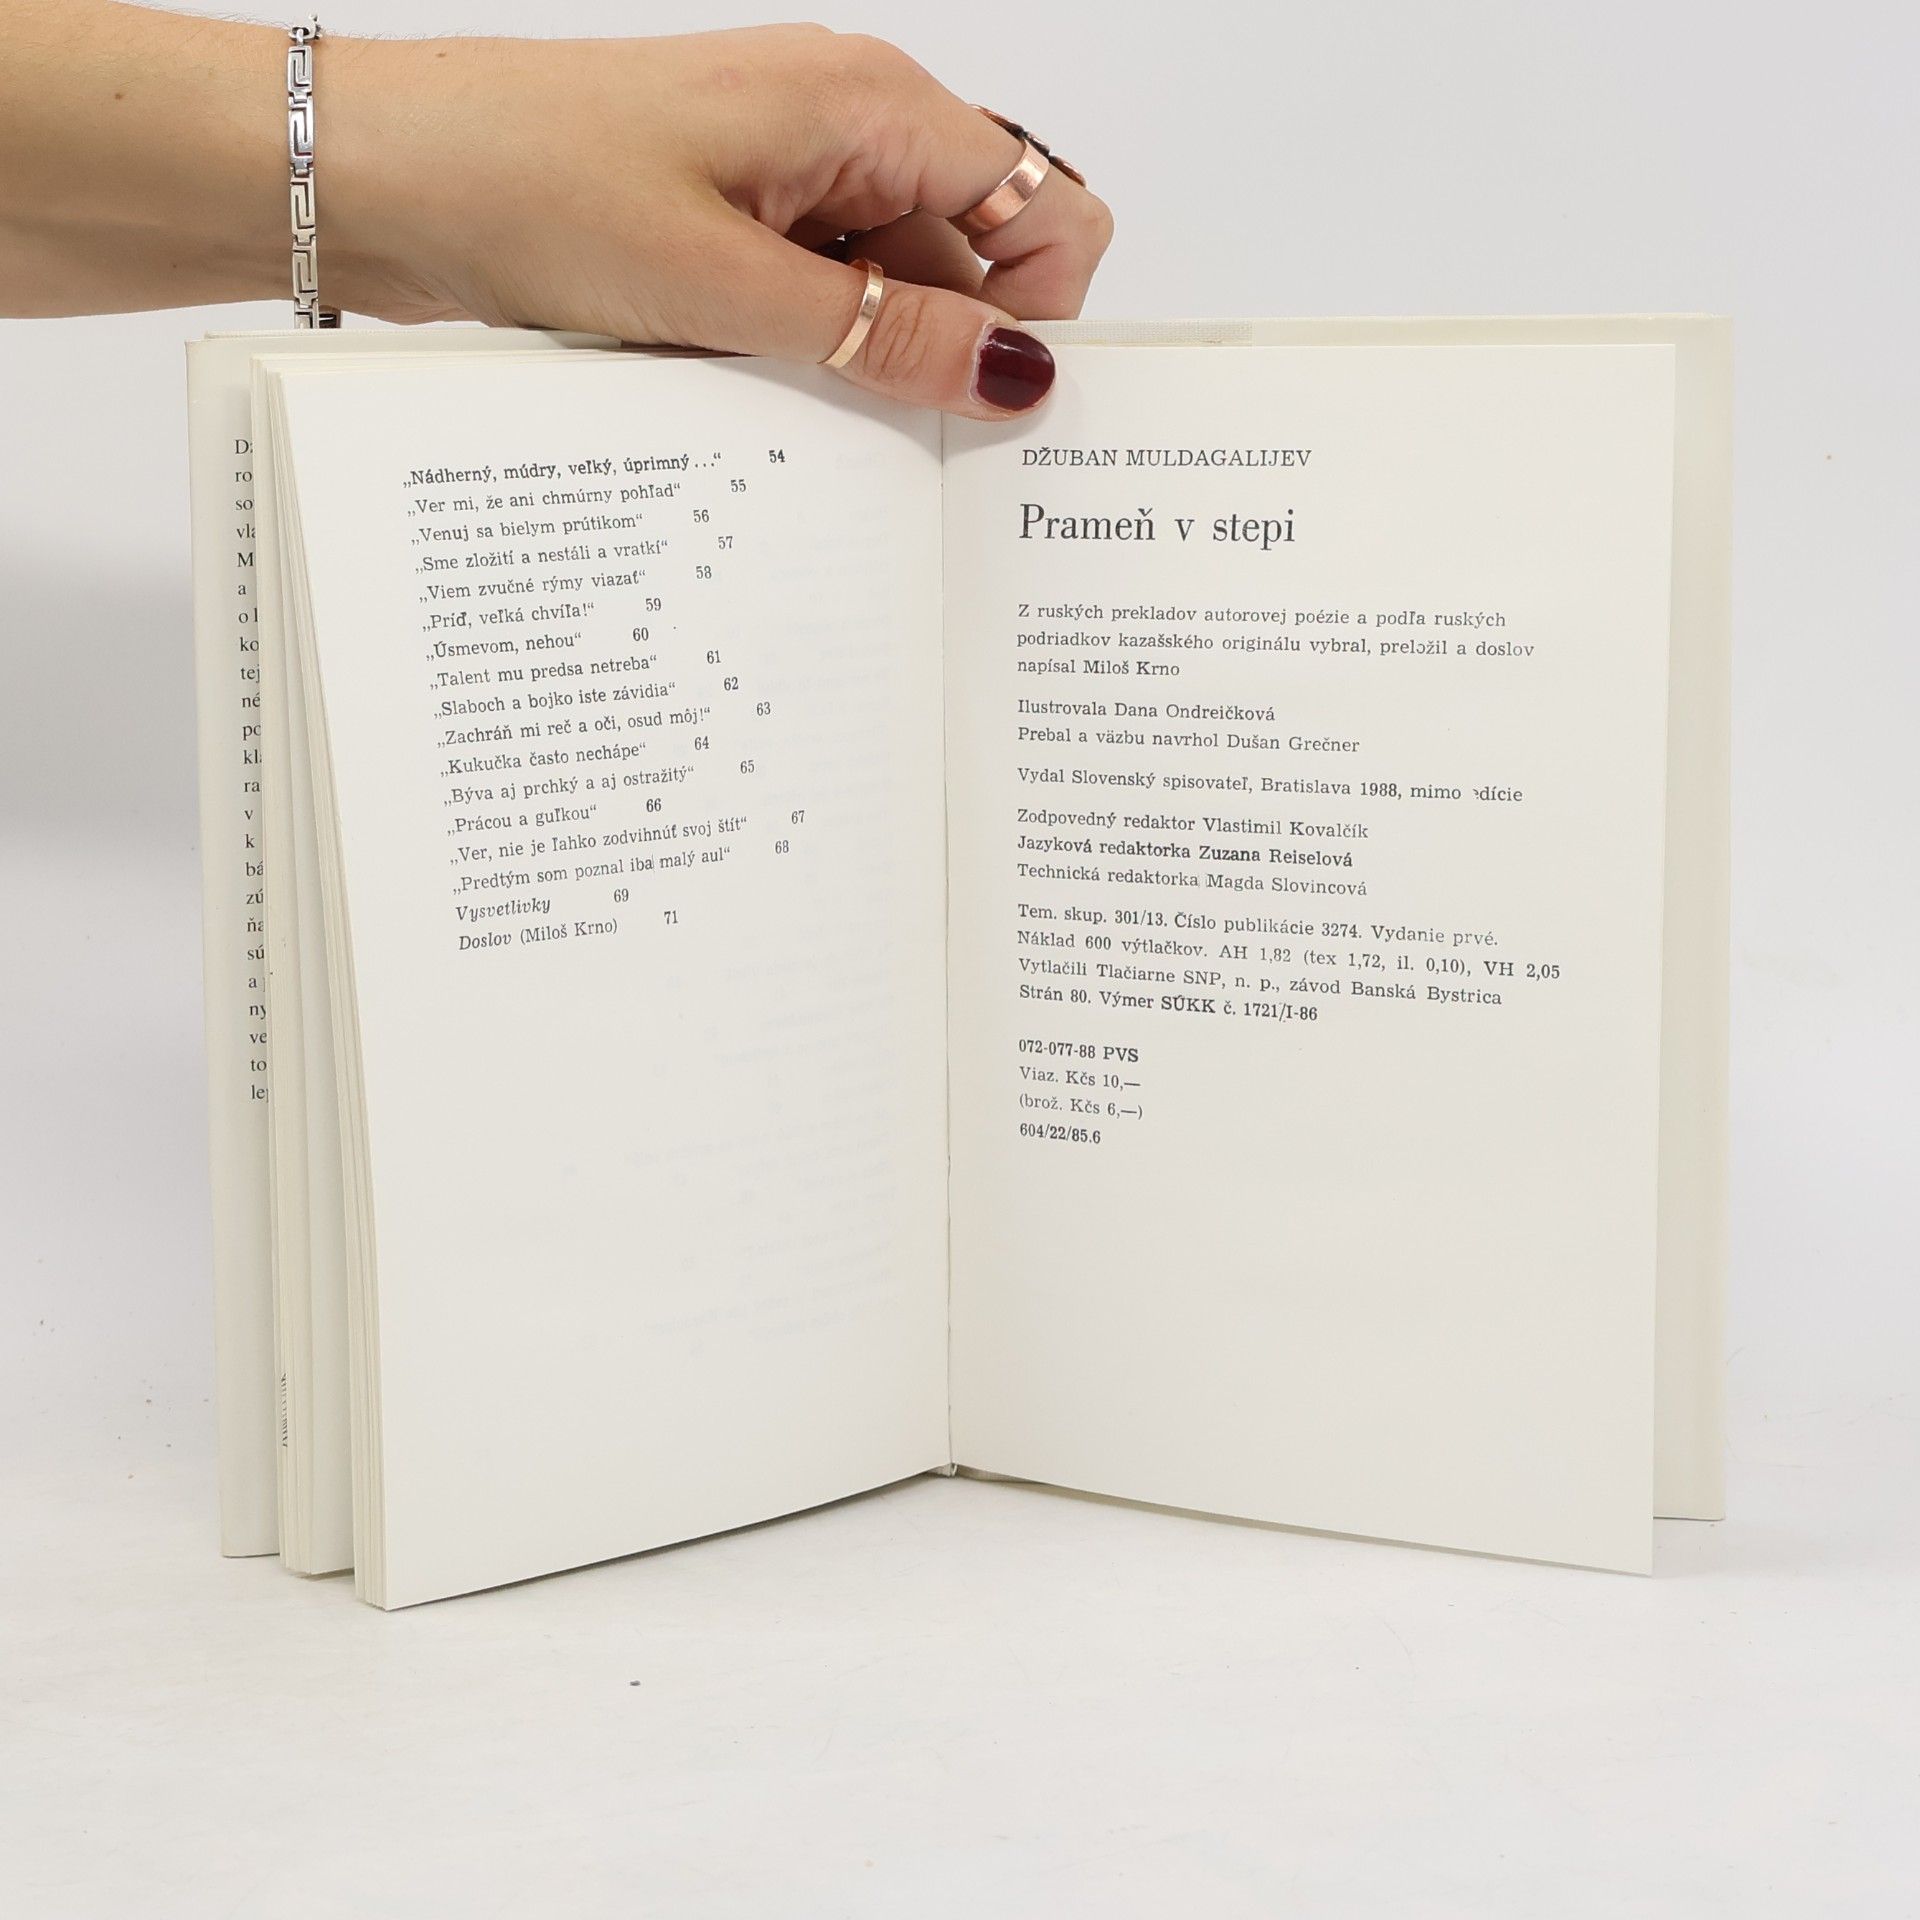 „Nádherný, múdry, veľký, úprimný ...“ 54
„Ver mi, že ani chmúrny pohľad“ 55
„Venuj sa bielym prútikom“ 56
„Sme zložití a nestáli a vratkí“ 57
„Viem zvučné rýmy viazať“ 58
„Príď, veľká chvíľa!“ 59
„Úsmevom, nehou“ 60
„Talent mu predsa netreba“ 61
„Slaboch a bojko iste závidia“ 62
„Zachráň mi reč a oči, osud môj!“ 63
„Kukučka často nechápe“ 64
„Býva aj prchký a aj ostražitý“ 65
„Prácou a guľkou“ 66
„Ver, nie je ľahko zodvihnúť svoj štít“ 67
„Predtým som poznal iba malý aul“ 68
Vysvetlivky 69
Doslov (Miloš Krno) 71
DŽUBAN MULDAGALIJEV
Prameň v stepi
Z ruských prekladov autorovej poézie a podľa ruských
podriadkov kazašského originálu vybral, preložil a doslov
napísal Miloš Krno
Ilustrovala Dana Ondreičková
Prebal a väzbu navrhol Dušan Grečner
Vydal Slovenský spisovateľ, Bratislava 1988, mimo edície
Zodpovedný redaktor Vlastimil Kovalčík
Jazyková redaktorka Zuzana Reiselová
Technická redaktorka Magda Slovincová
Tem. skup. 301/13. Číslo publikácie 3274. Vydanie prvé.
Náklad 600 výtlačkov. AH 1,82 (tex 1,72, il. 0,10), VH 2,05
Vytlačili Tlačiarne SNP, n. p., závod Banská Bystrica
Strán 80. Výmer SÚKK č. 1721/I-86
072-077-88 PVS
Viaz. Kčs 10,—
(brož. Kčs 6,—)
604/22/85.6